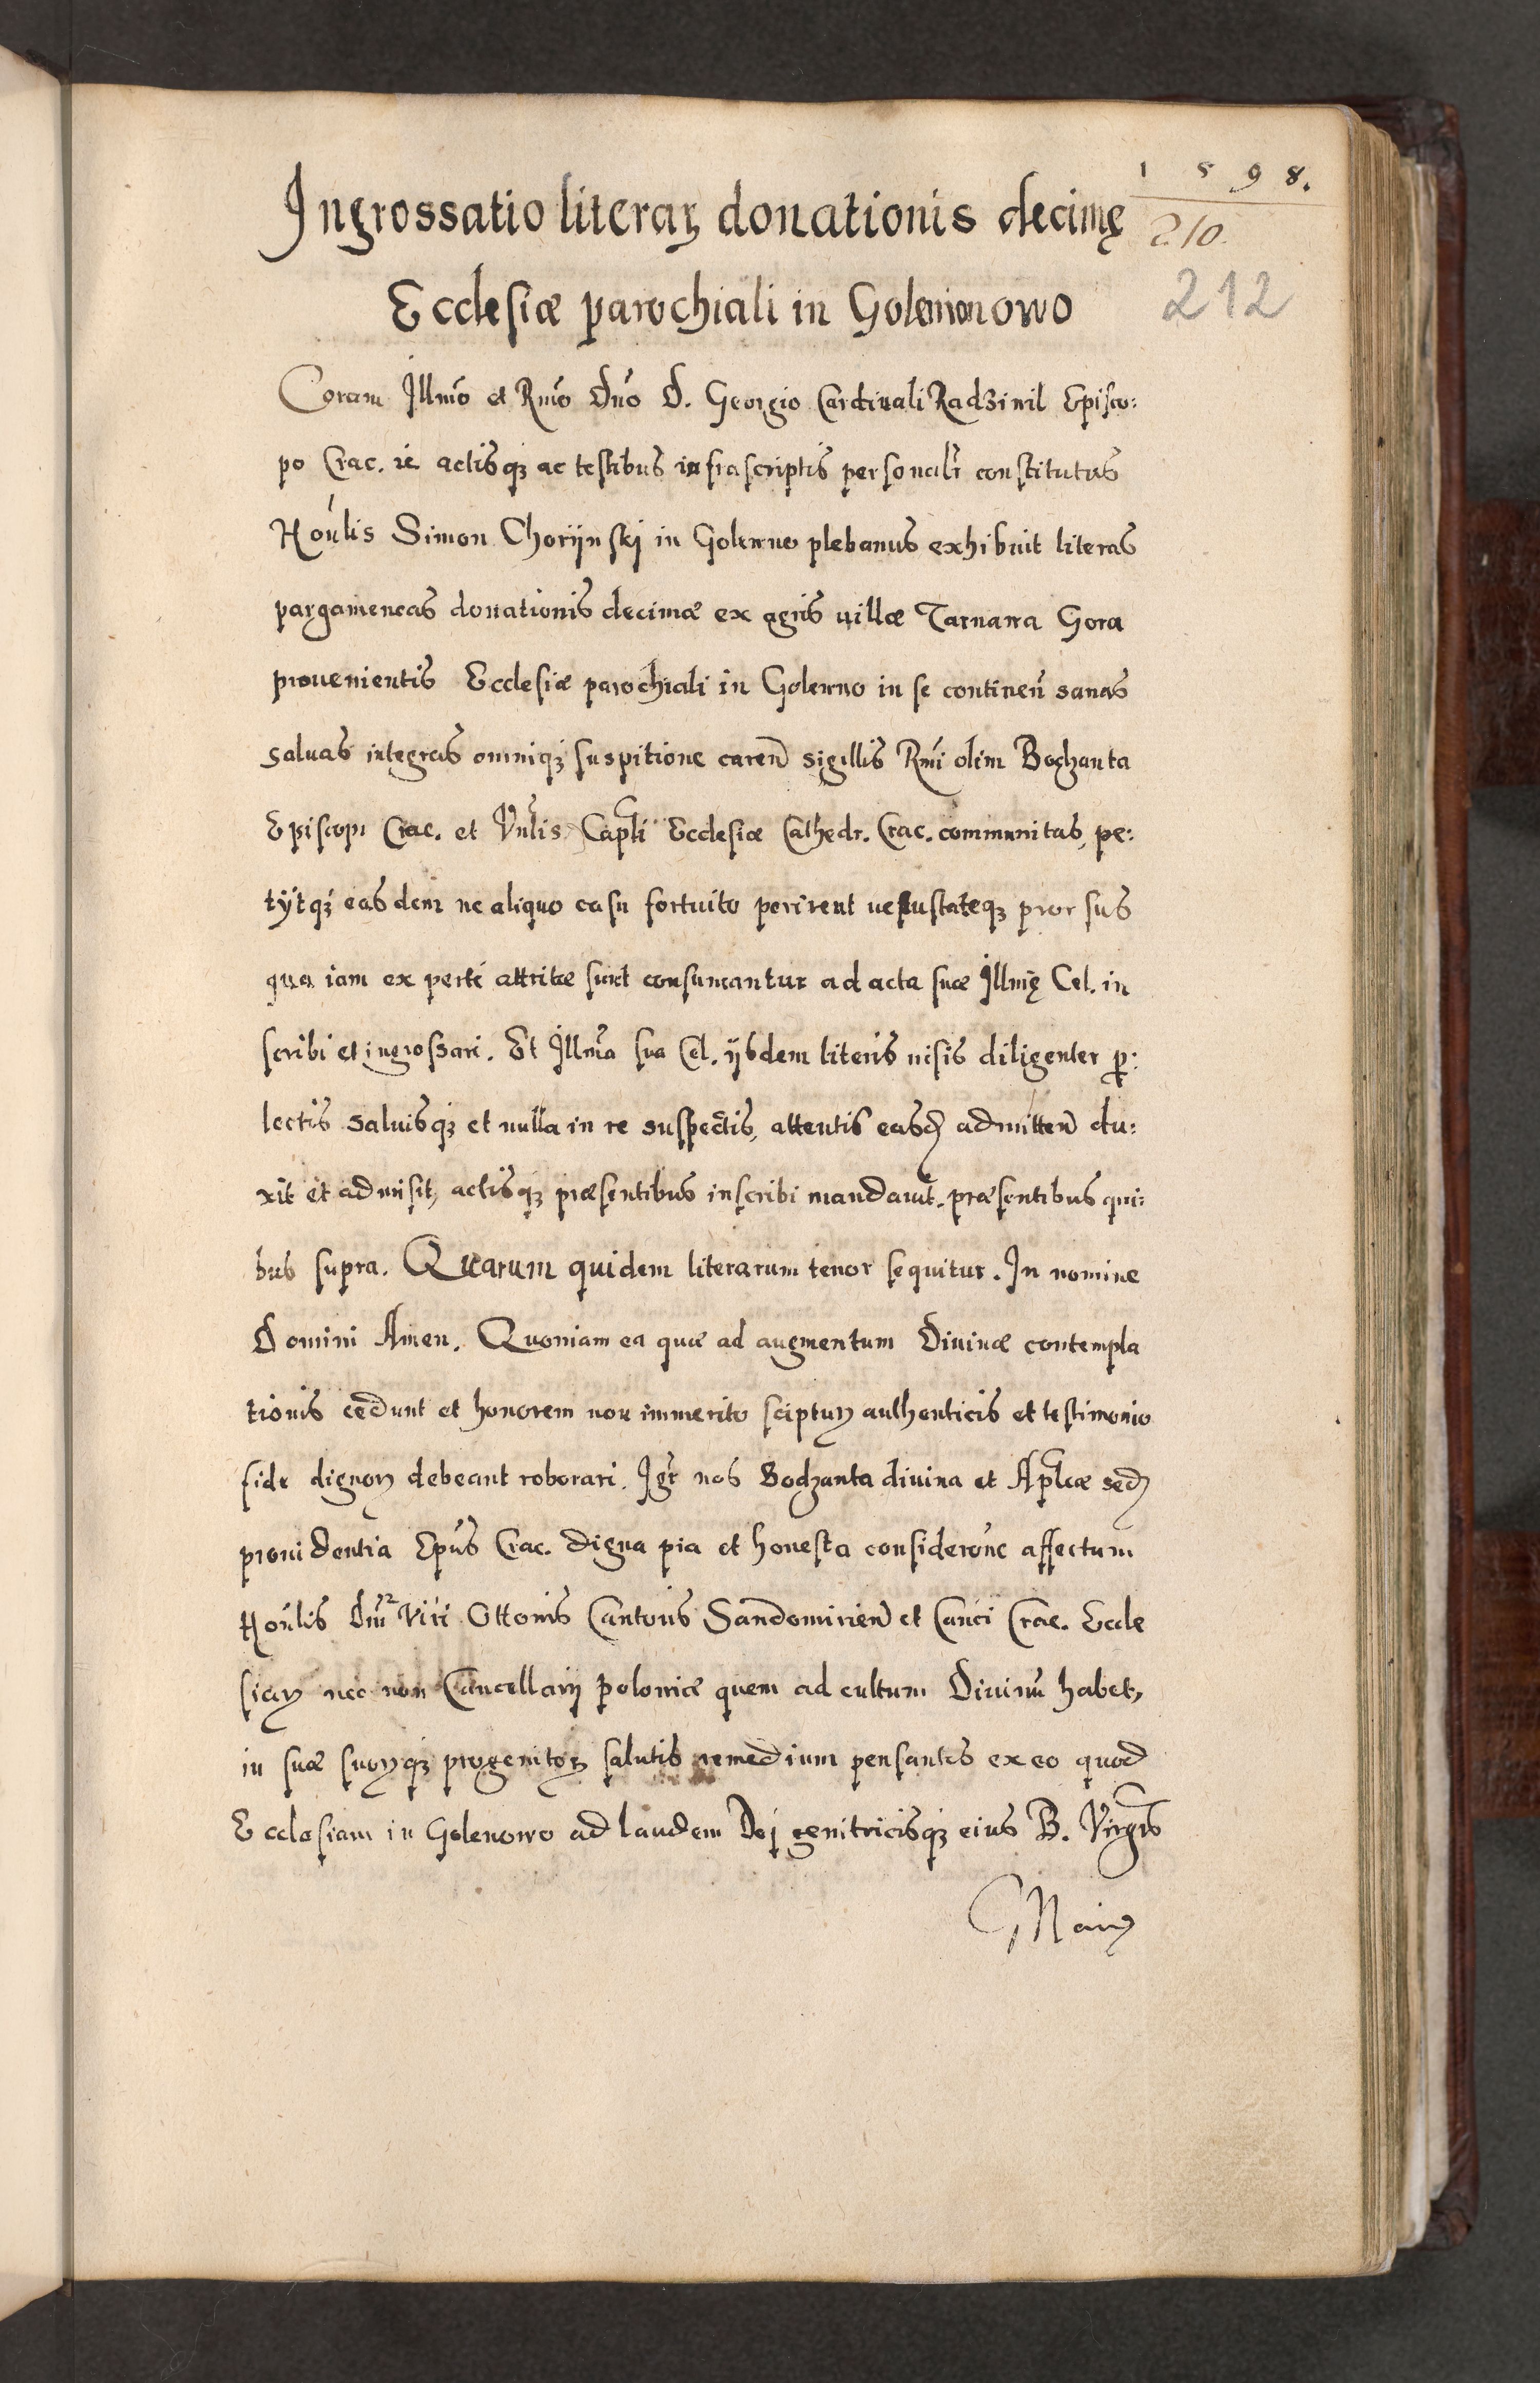 1598.
Ingrossatio literaꝝ donationis decimę
210.
Ecclesiæ parochiali in Golenionowo
212
Coram Illmo et Rmo Dno D. Georgio Cardinali Radziwil Episco:
po Crac. ac actisqꝫ ac testibus infrascriptis personalr constitutus
Honlis Simon Chorijnskj in Golenwo plebanus exhibuit literas
pargameneas donationis decimæ ex agris uillæ Tarnawa Gora
prouenientis Ecclesiæ parochiali in Golenwo in se continen sanas
saluas integras omniqꝫ suspitione caren sigillis Rmi olim Boczanta
Episcopi Crac. et Vnlis Capli Ecclesiæ Cathedr. Crac. communitas, pe:
tijtqꝫ easdem ne aliquo casu fortuito perirent uetustateqꝫ prorsus
qua iam ex parte attritæ sunt consumantur ad acta suæ Illmę Cel. in
scribi et ingrossari. Et Illma sua Cel. ijsdem literis uisis diligenter ꝑ:
lectis saluisqꝫ et nulla in re suspectis, attentis easd admitten du:
xit et admisit, actisqꝫ præsentibus inscribi mandauit. præsentibus qui:
bus supra. Quarum quidem literarum tenor sequitur. In nomine
Domini Amen. Quoniam ea quæ ad augmentum Diuinæ contempla
tionis cedunt et honorem non immerito sciptuꝝ authenticis et testimonio
fide dignoꝝ debeant roborari. Igr nos Bodzanta diuina et Aplicæ sed
prouidentia Epus Crac. digna pia et honesta considerone affectum
Honlis Dni Viri Ottonis Cantoris Sandomirien et Canci Crac. Eccle
siaꝝ nec non Cancellarij poloniæ quem ad cultum Diuinu habet,
in suæ suoꝝqꝫ progenitoꝝ salutis remedium pensantes ex eo quod
Ecclesiam in Golenowo ad laudem Dej genitricisqꝫ eius B. Virgis
Mariæ